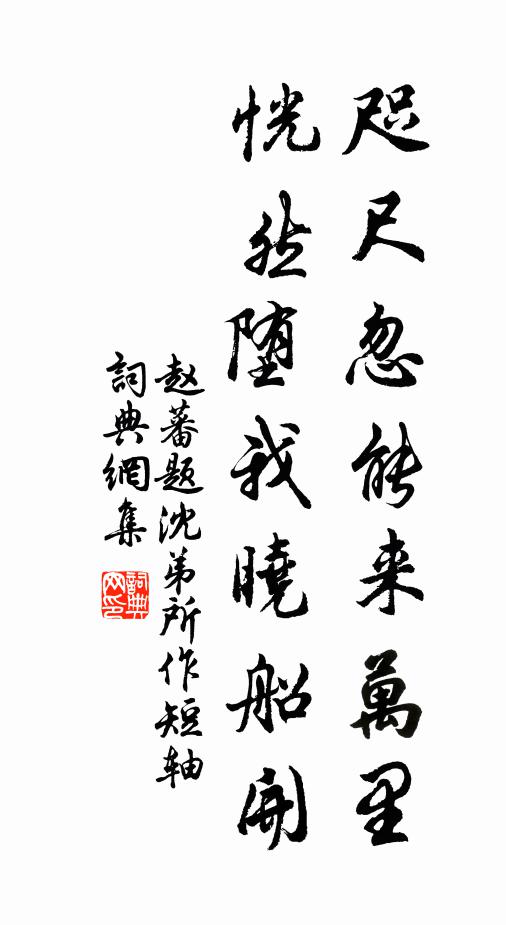 咫尺忽能来萬里
恍然堕我曉船開
赵蕃題沈弟所作短轴
詞典網集
詞典网印